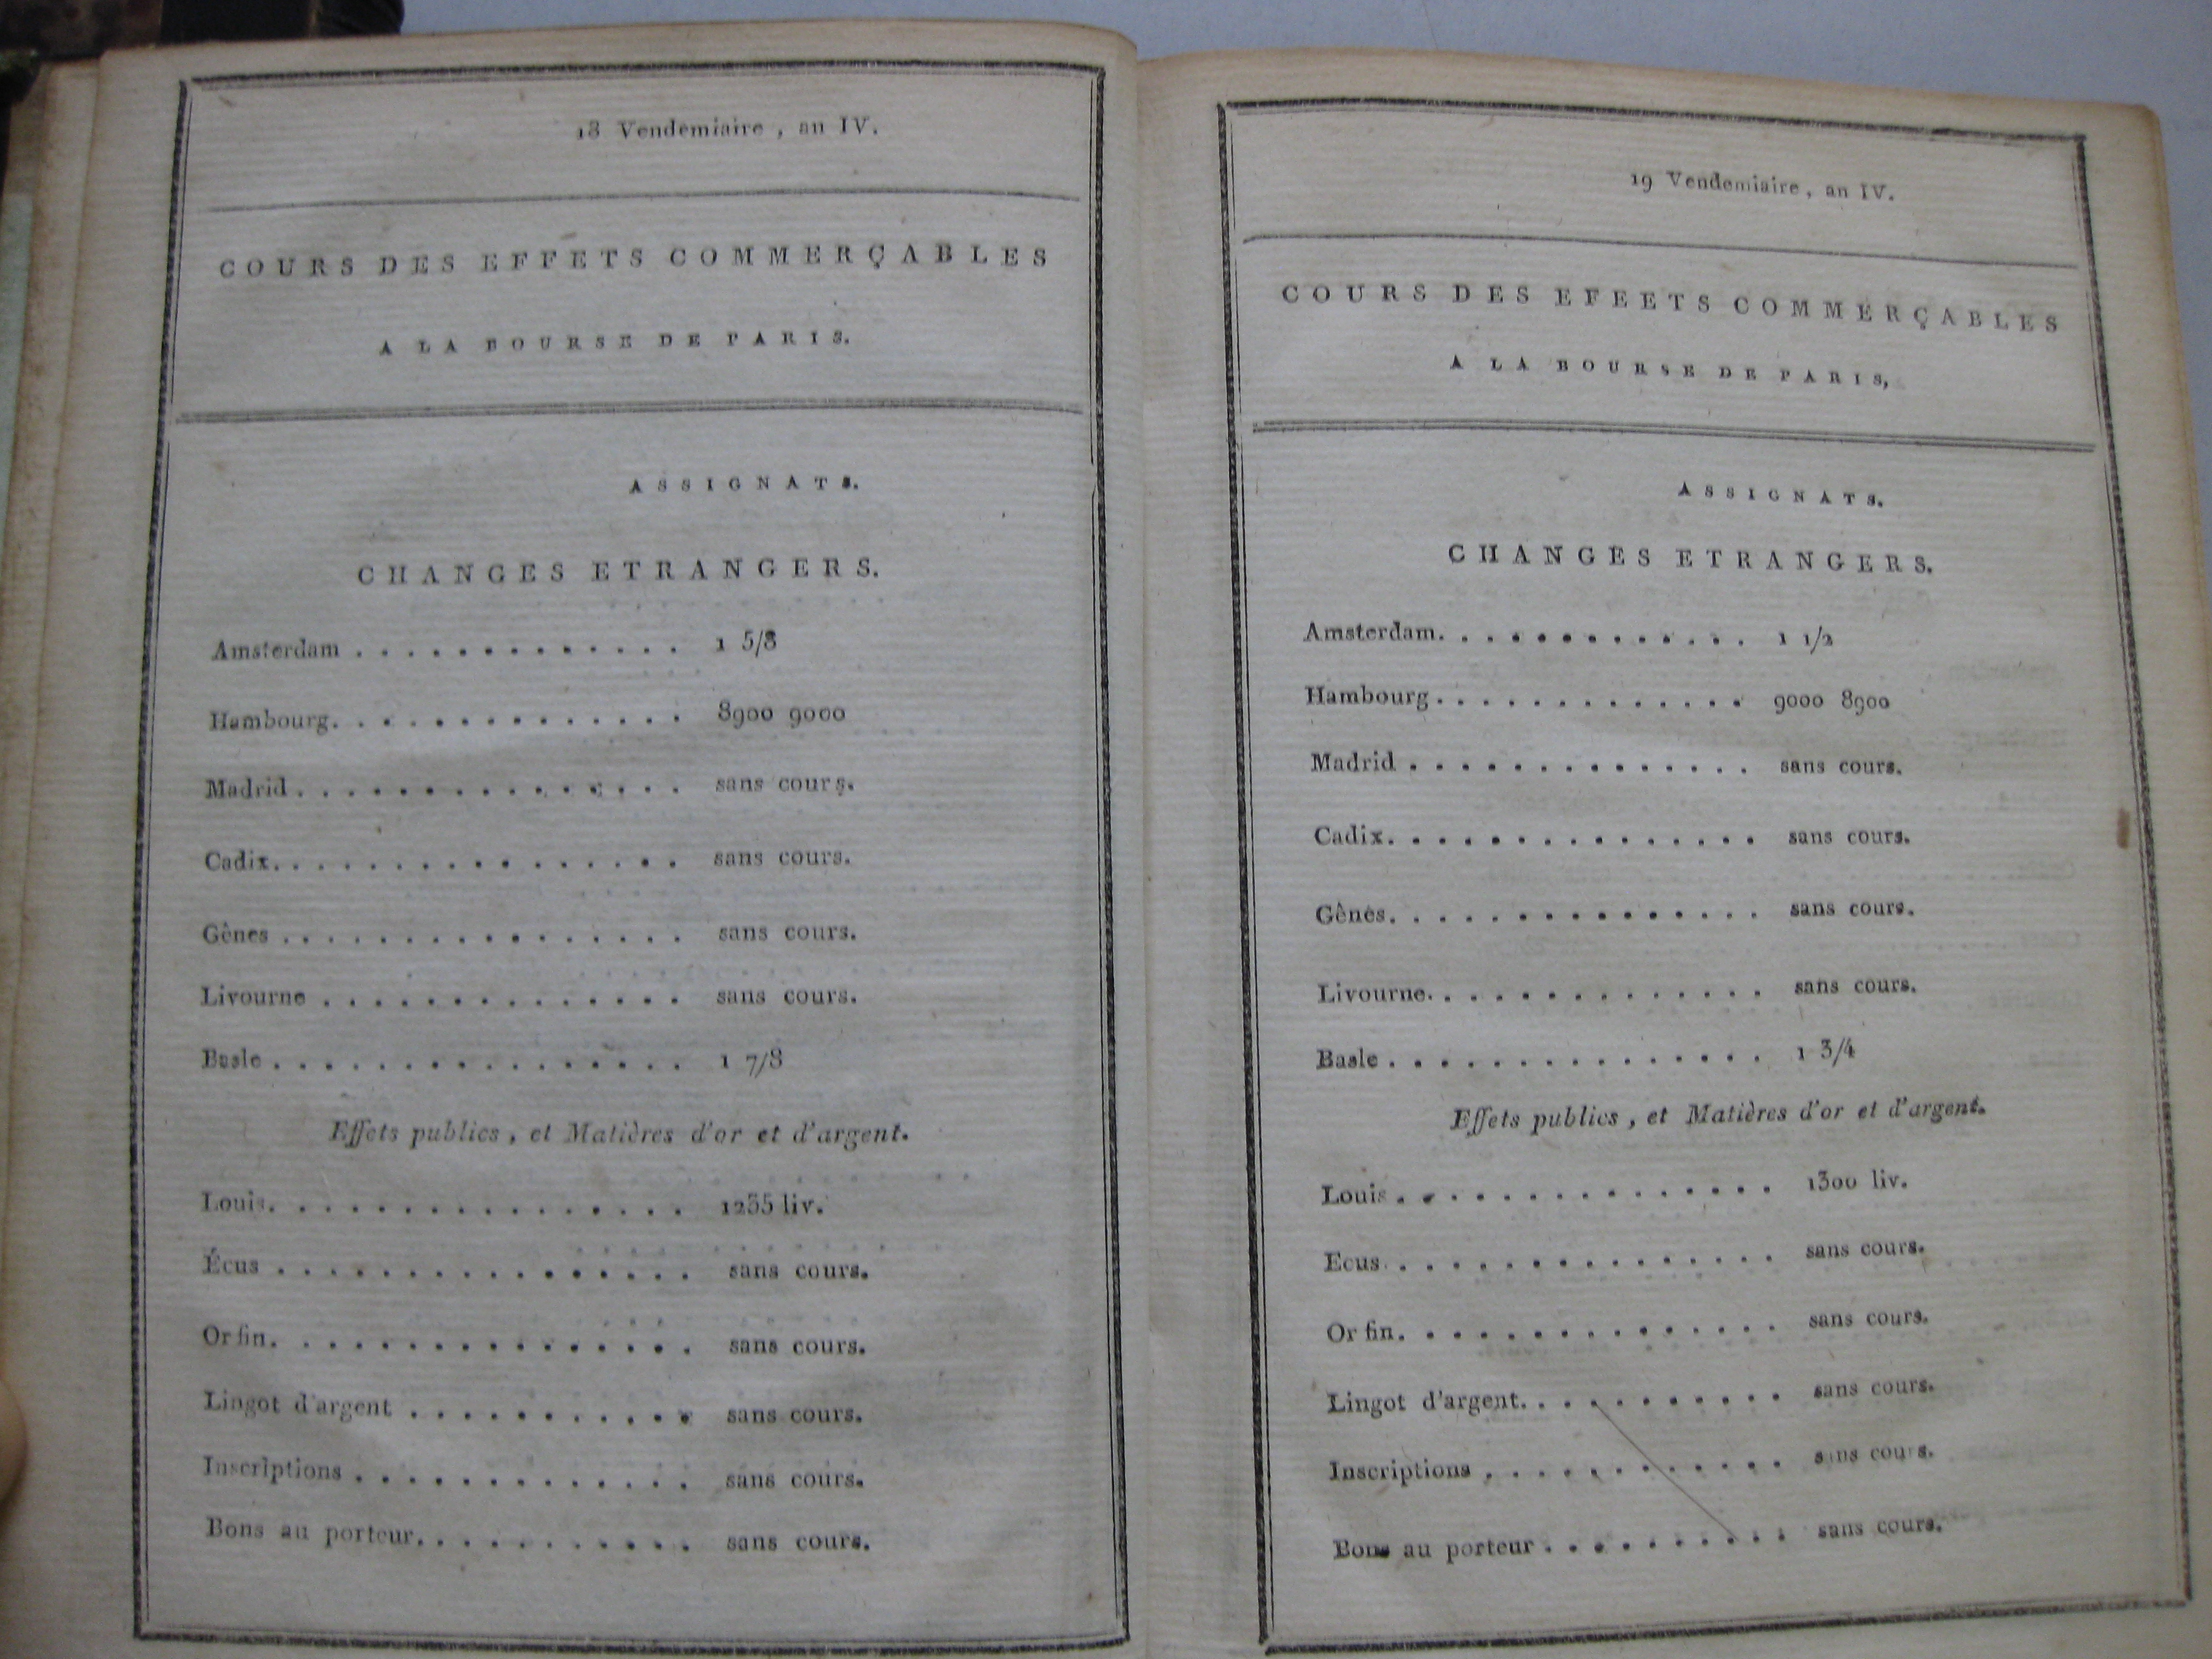 18 Vendemiaire, an IV.
COURS DES EFFETS COMMERÇABLES
A LA BOURSE DE PARIS.
ASSIGNATS.
CHANGES ETRANGERS.
Amsterdam . . . . . . . . . . . . . 1 5/8
Hambourg. . . . . . . . . . . . . . 8900 9000
Madrid . . . . . . . . . . . . . . . sans cours.
Cadix. . . . . . . . . . . . . . . . sans cours.
Gênes . . . . . . . . . . . . . . . . sans cours.
Livourne . . . . . . . . . . . . . . sans cours.
Basle . . . . . . . . . . . . . . . . 1 7/8
Effets publics, et Matières d'or et d'argent.
Louis. . . . . . . . . . . . . . . . . 1255 liv.
Écus . . . . . . . . . . . . . . . . . sans cours.
Or fin. . . . . . . . . . . . . . . . . sans cours.
Lingot d'argent . . . . . . . . . . . sans cours.
Inscriptions . . . . . . . . . . . . . sans cours.
Bons au porteur. . . . . . . . . . . sans cours.
19 Vendemiaire, an IV.
COURS DES EFEETS COMMERÇABLES
A LA BOURSE DE PARIS,
ASSIGNATS.
CHANGES ETRANGERS.
Amsterdam. . . . . . . . . . . . . 1 1/2
Hambourg . . . . . . . . . . . . . 9000 8900
Madrid . . . . . . . . . . . . . . sans cours.
Cadix. . . . . . . . . . . . . . . sans cours.
Gênes. . . . . . . . . . . . . . . sans cours.
Livourne. . . . . . . . . . . . . . sans cours.
Basle . . . . . . . . . . . . . . . 1 3/4
Effets publics, et Matières d'or et d'argent.
Louis . . . . . . . . . . . . . . . 1300 liv.
Ecus . . . . . . . . . . . . . . . . sans cours.
Or fin. . . . . . . . . . . . . . . sans cours.
Lingot d'argent. . . . . . . . . . . sans cours.
Inscriptions . . . . . . . . . . . . sans cours.
Bons au porteur . . . . . . . . . . sans cours.